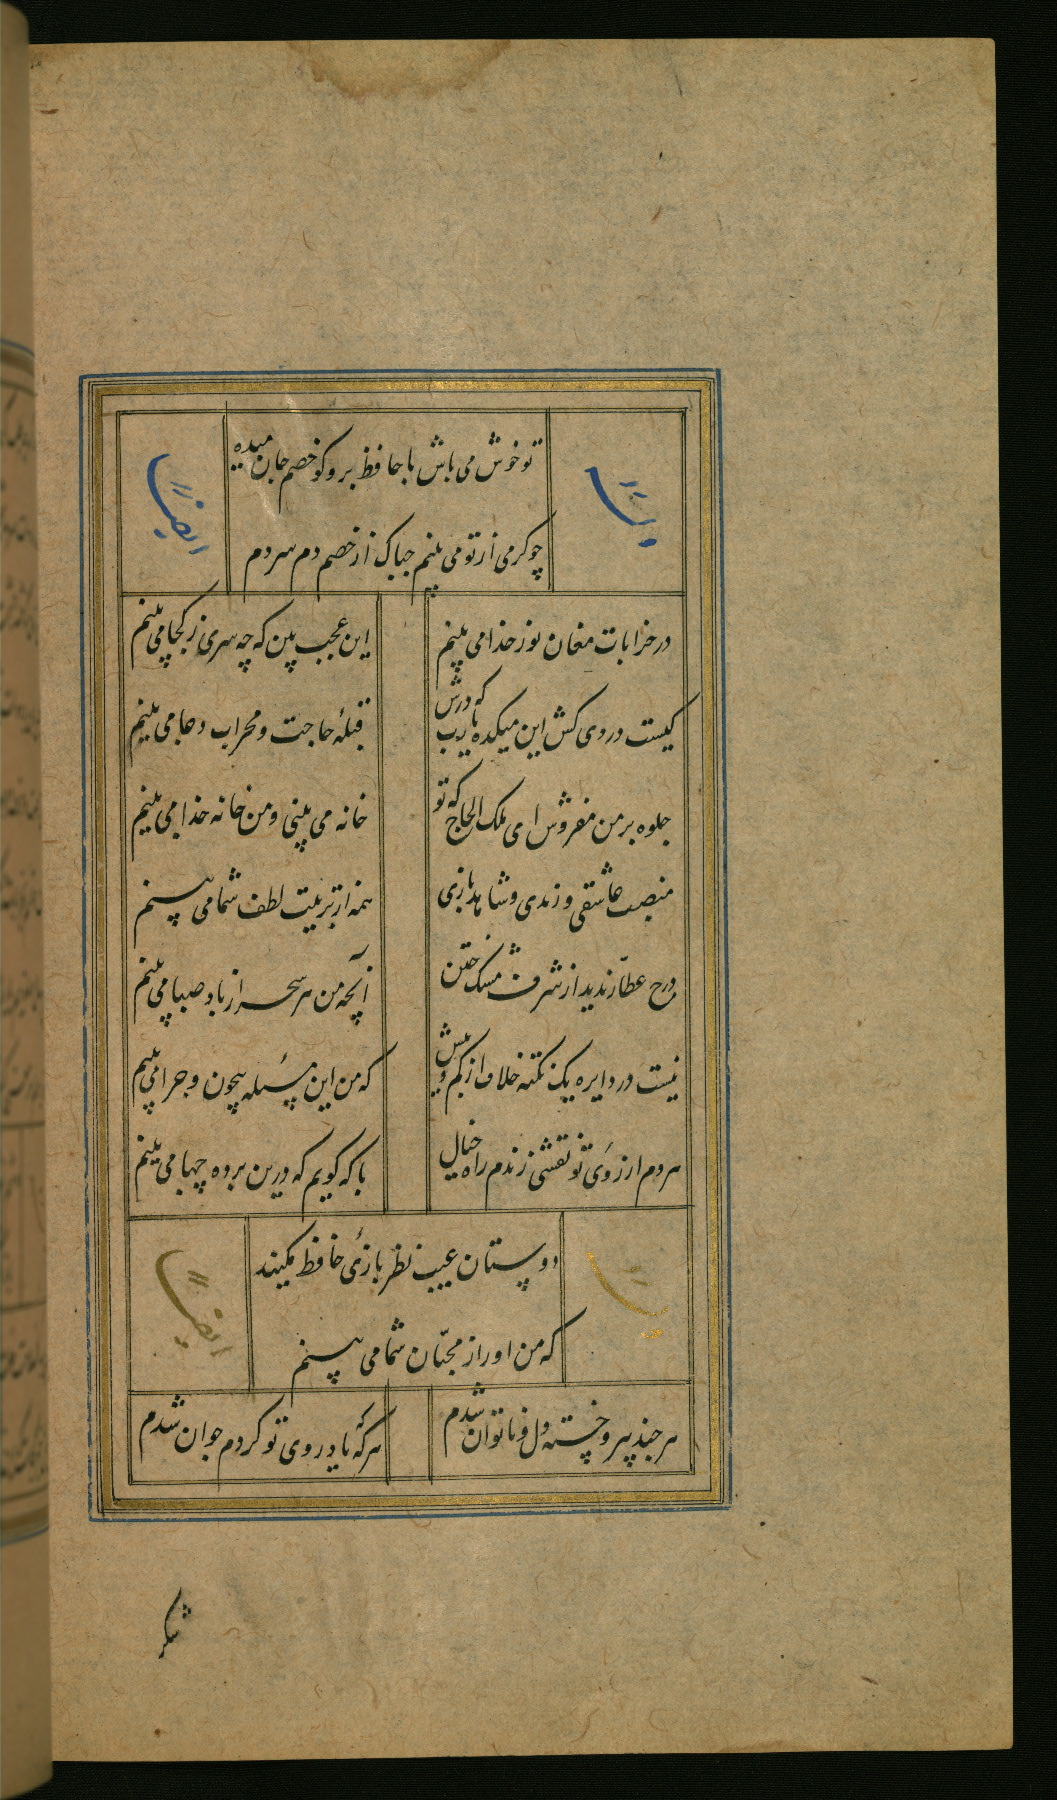 تو خوش می باش با حافظ برو کو خصم جان میده
چو کرمی از تو می بینم چباک از خصم دم سردم
وله
ایضا
در خرابات مغان نور خدا می بینم
این عجب بین که چه سری ز کجا می بینم
کیست دردی کش این میکده یارب که درش
قبلهٔ حاجت و محراب دعا می بینم
جلوه بر من مفروش ای ملک الحاج که تو
خانه می بینی و من خانه خدا می بینم
منصب عاشقی و رندی و شاهد بازی
همه از تربیت لطف شما می بینم
درج عطار ندید از شرف مشک ختن
آنچه من هر سحر از باد صبا می بینم
نیست در دایره یک نکته خلاف از کم و بیش
که من این مسئله بیچون و چرا می بینم
هر دم از روی تو نقشی زندم راه خیال
با که کویم که درین پرده چها می بینم
دوستان عیب نظر بازی حافظ مکنید
که من او را ز محبان شما می بینم
ایضا
هر چند پیر و خسته دل و ناتوان شدم
هر که که یاد روی تو کردم جوان شدم
شکر